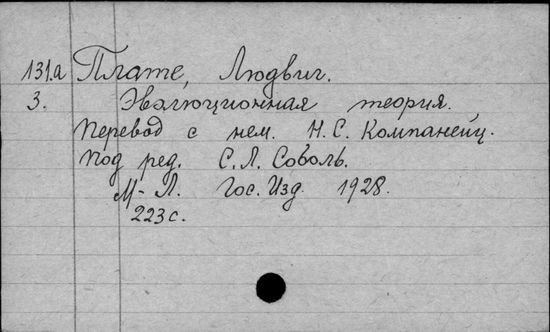 131.а Плате, Людвиг.
3. Эволюционная теория.
Перевод с нем. Н.С. Компанеец.
Под ред. С.Л. Соболь.
М-Л. Гос. Изд. 1928.
223 с.